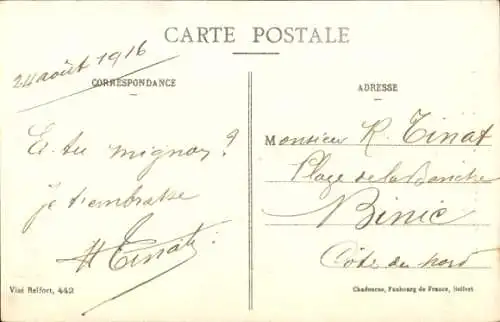 CARTE POSTALE
24 août 1916
CORRESPONDANCE
Es tu mignon ?
je t'embrasse
H Tinat
Visé Belfort, 442
ADRESSE
Monsieur R. Tinat
Plage de la Banche
Binic
Côte du Nord
Chadourne, Faubourg de France, Belfort